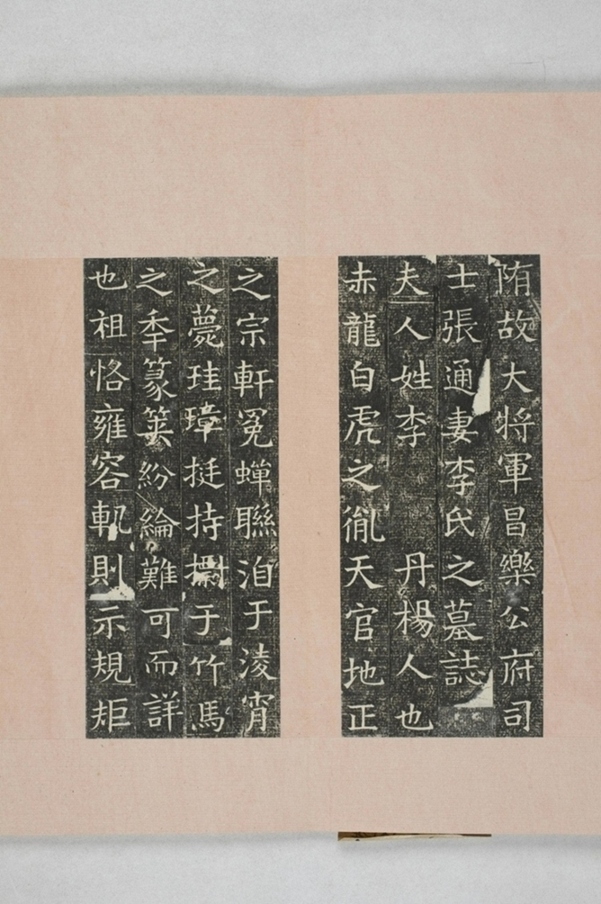 隋故大将軍昌樂公府司
士張通妻李氏之墓誌
夫人姓李 丹楊人也
赤龍白虎之胤天官地正
之宗軒冕蟬聯洎于淩宵
之薨珪璋挺持于竹馬
之年篆篆紛綸難可而詳
也祖恪雍容軌則示規矩